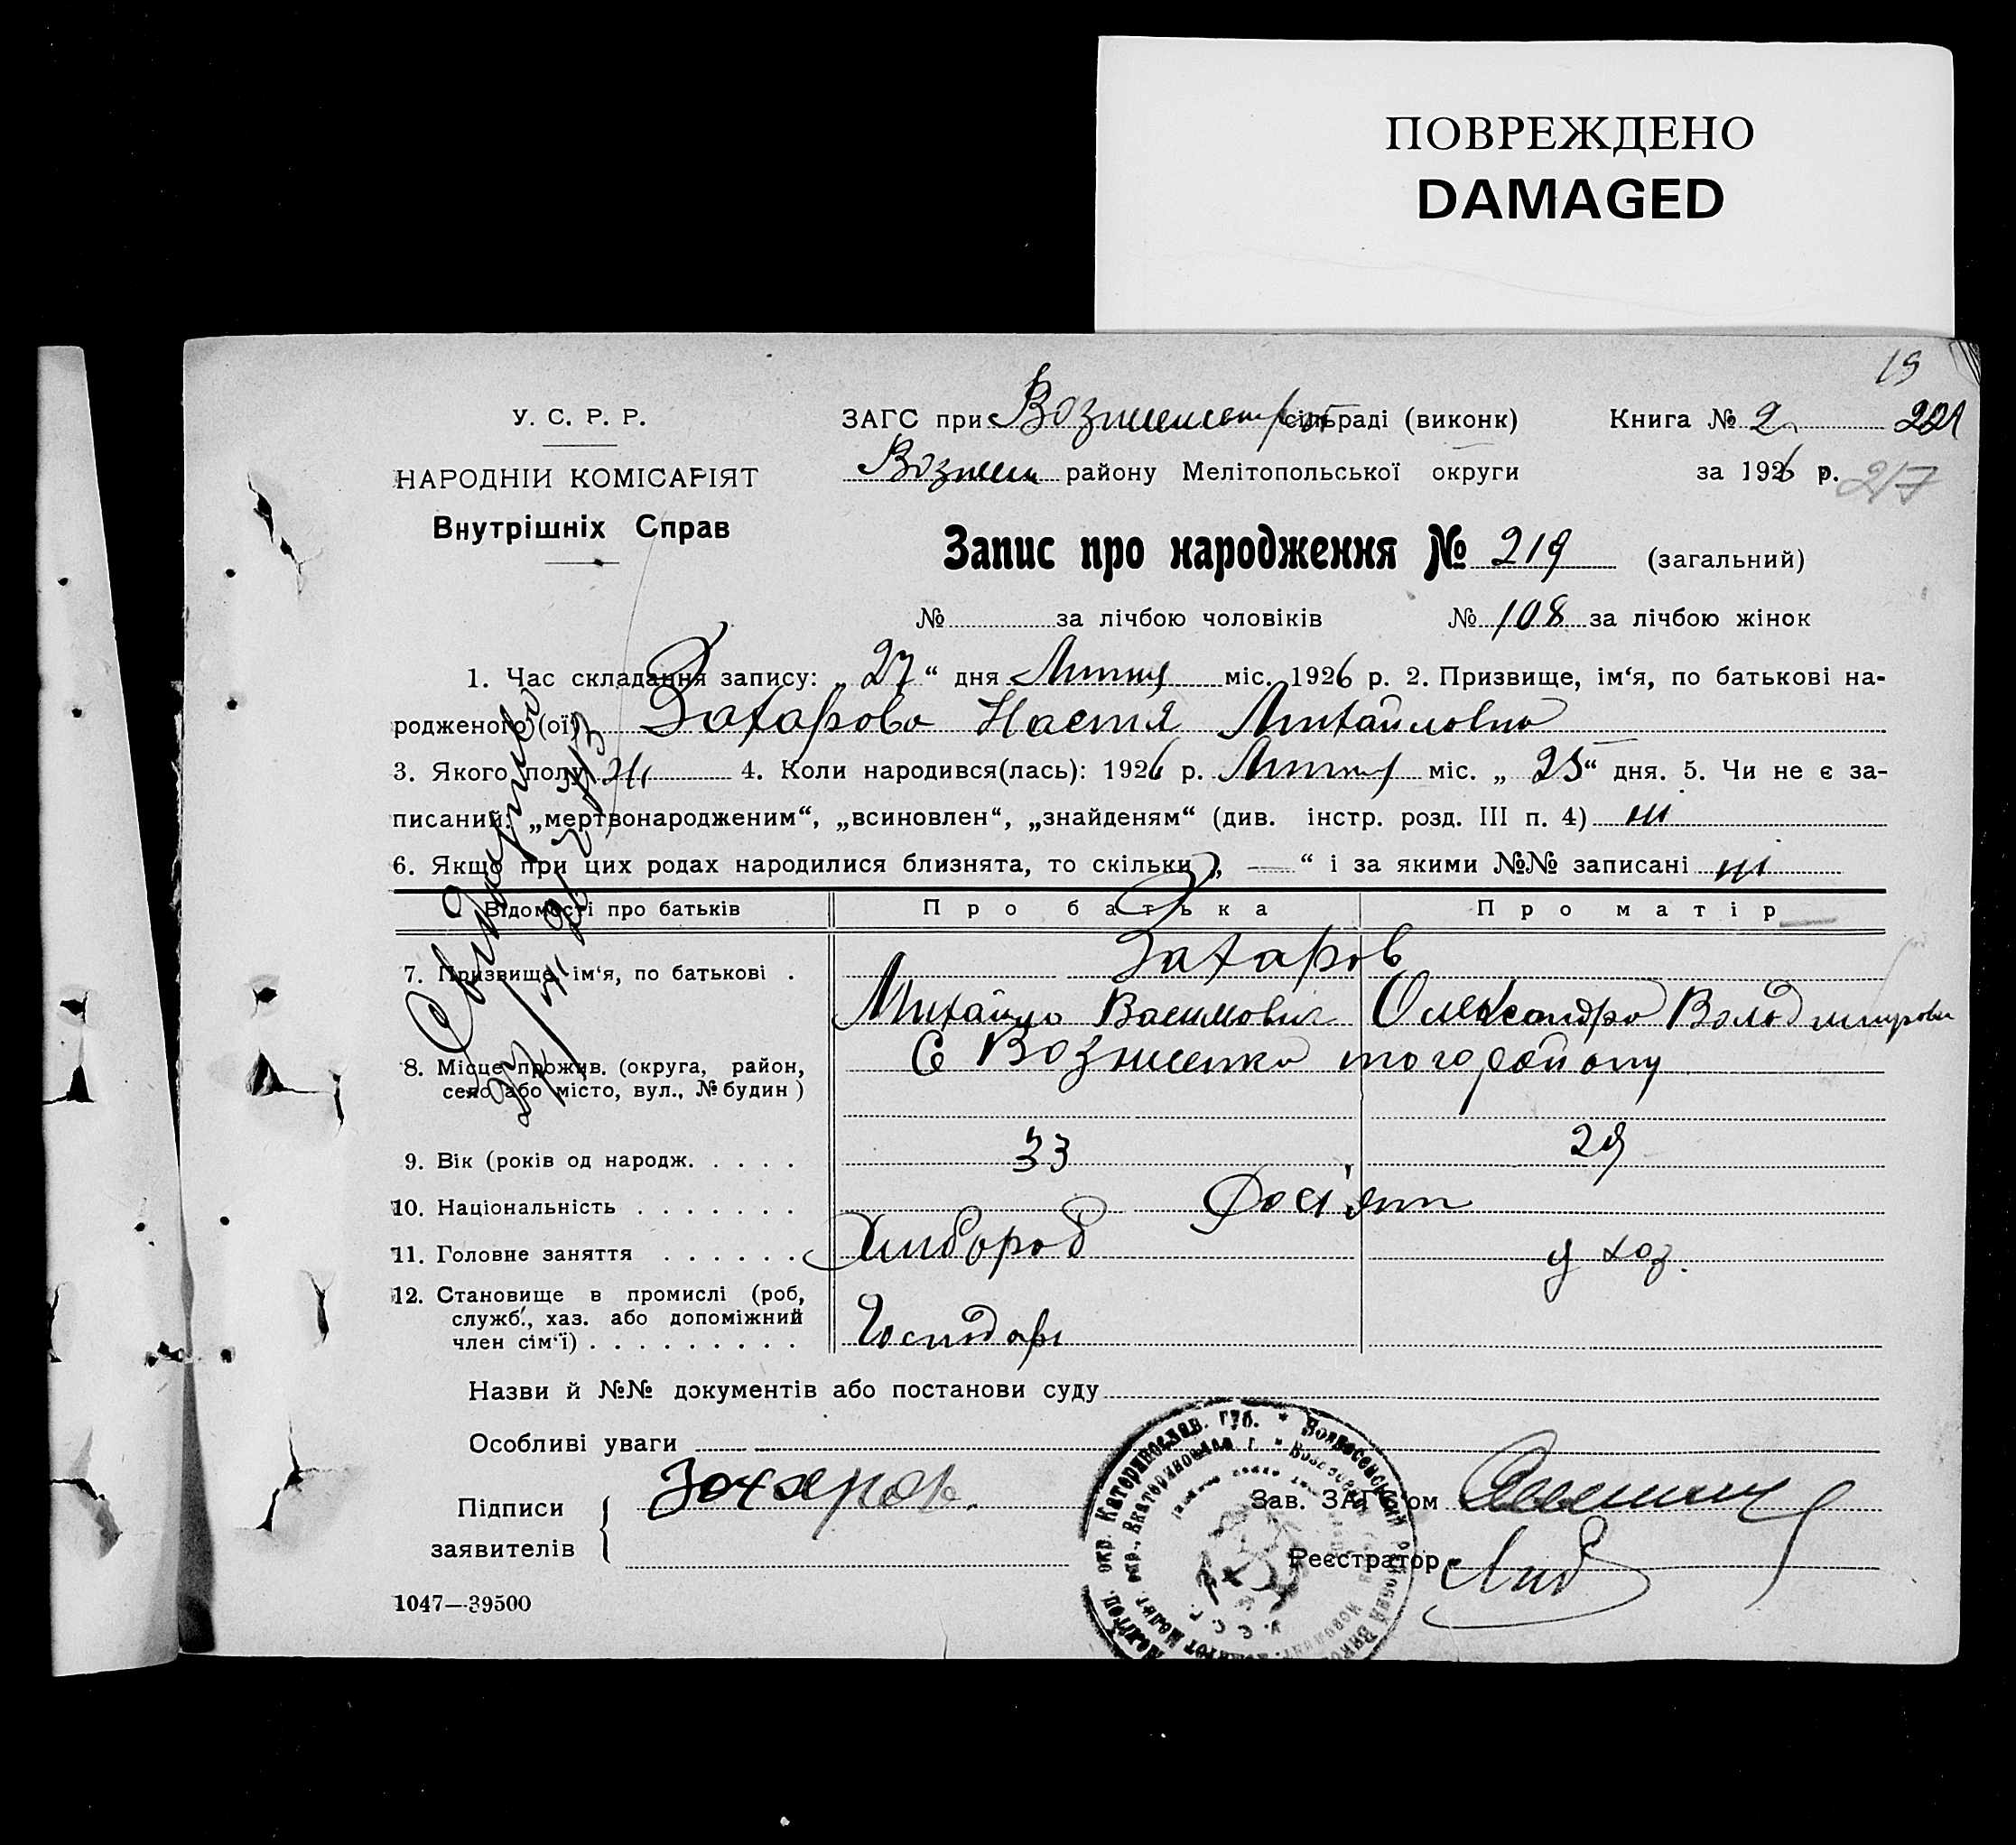 ПОВРЕЖДЕНО
DAMAGED
19
У. С. Р. Р.
НАРОДНІЙ КОМІСАРІЯТ
Внутрішніх Справ
ЗАГС при сільраді (виконк)
Книга № 2 221
району Мелітопольської округи
за 1926 р. 217
Запис про народження № 219 (загальний)
№ за лічбою чоловіків № 108 за лічбою жінок
1. Час складання запису: „ 27 “ дня Липня міс. 1926 р. 2. Призвище, ім‘я, по батькові на-
родженого(ої) Захарова Настя Михайловна
3. Якого полу Ж 4. Коли народився(лась): 1926 р. Липня міс. „ 25 “ дня. 5. Чи не є за-
писаний: „мертвонародженим“, „всиновлен“, „знайденям“ (див. інстр. розд. III п. 4) ні
6. Якщо при цих родах народилися близнята, то скільки „ — “ і за якими №№ записані ні
Відомості про батьків Про батька Про матір
7. Призвище, ім‘я, по батькові .
Захаров
Михайло Василович Олександра Володимировн
8. Місце прожив. (округа, район,
село або місто, вул., № будин)
С Вознесенка того району
9. Вік (років од народж. . . . . 33 29
10. Національність . . . . . . .
11. Головне заняття . . . . . . Хлібороб у хаз.
12. Становище в промислі (роб,
служб., хаз. або допоміжний
член сім‘ї) . . . . . . . . . Господарь
Назви й №№ документів або постанови суду
Особливі уваги
Підписи
заявителів
Захаров.
Зав. ЗАГС'ом
Реєстратор
1047—39500